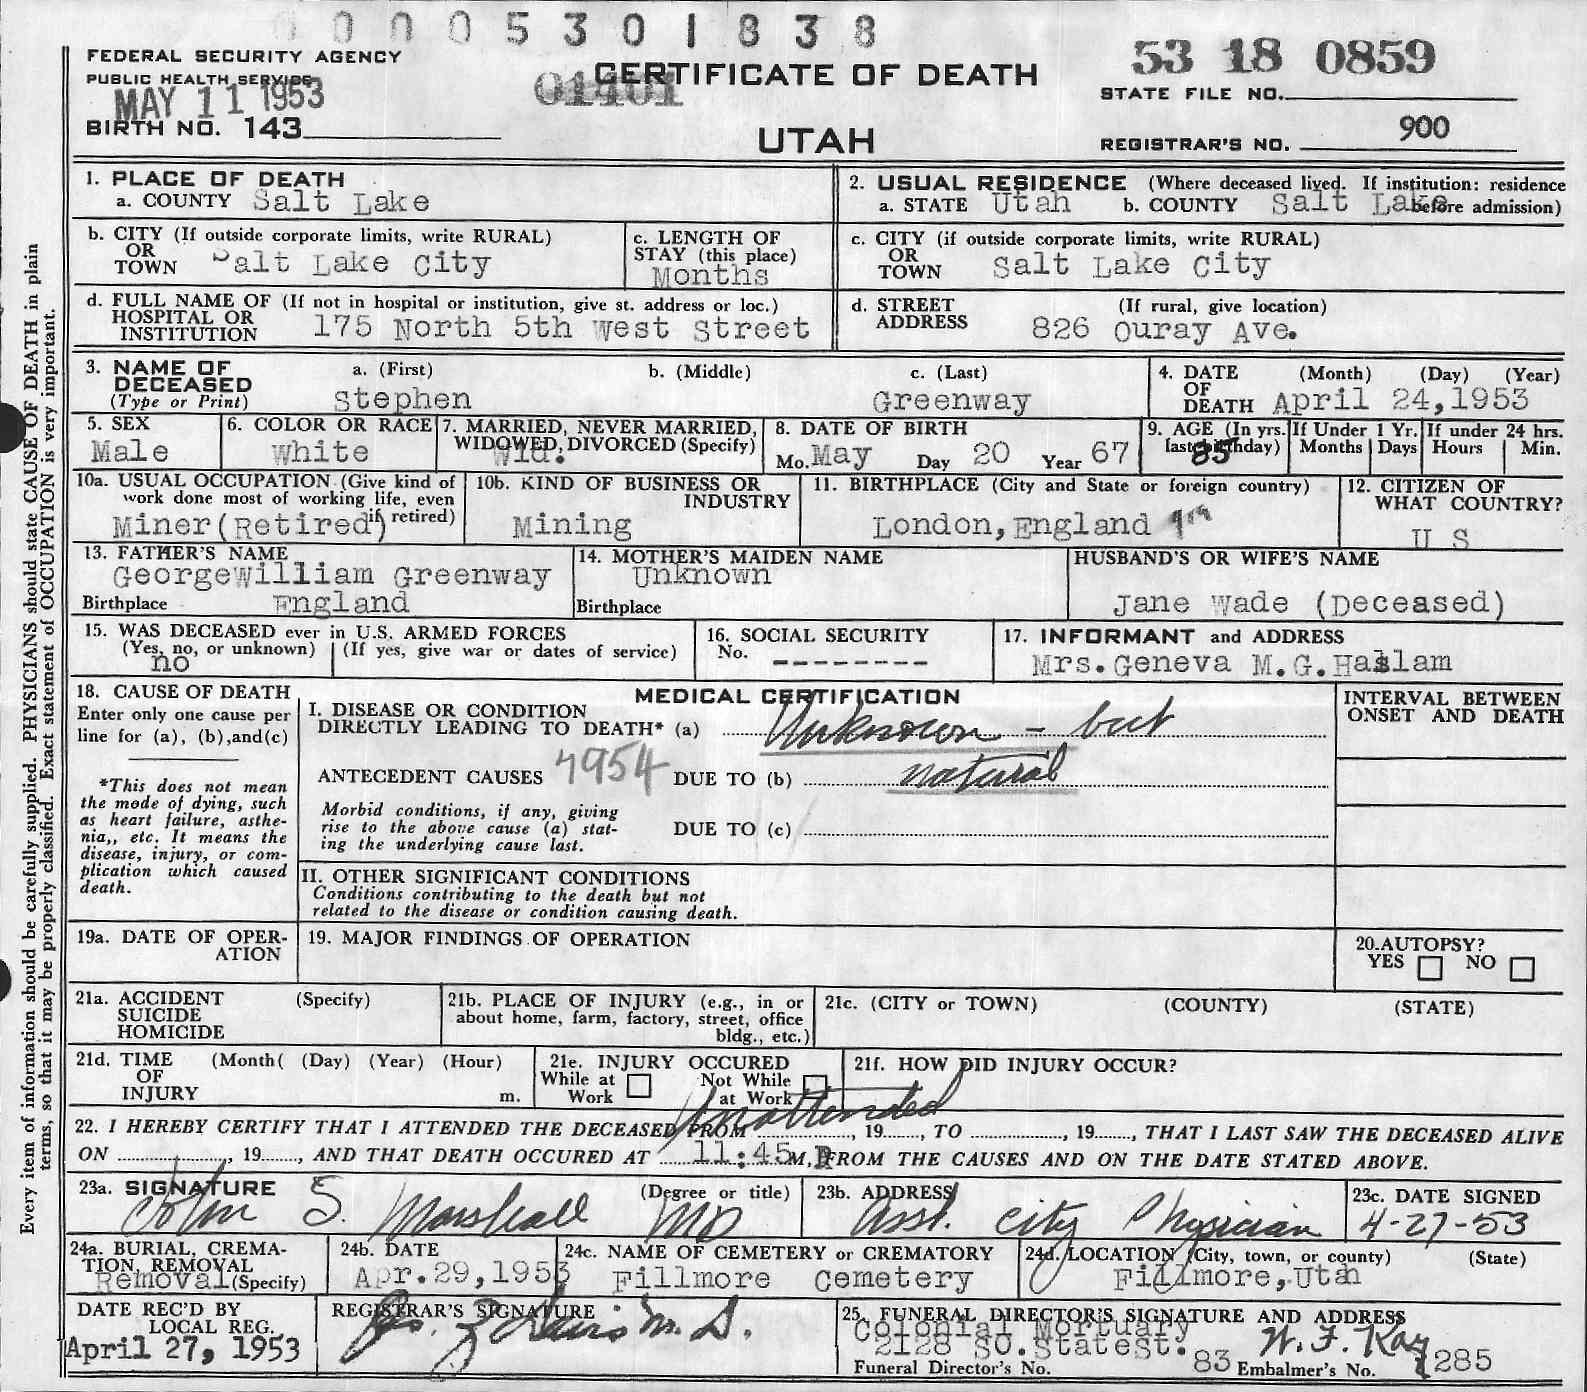 0 0 0 0 5 3 0 1 8 3 8
FEDERAL SECURITY AGENCY
PUBLIC HEALTH SERVICE
MAY 11 1953
BIRTH NO. 143
01401
CERTIFICATE OF DEATH
UTAH
53 18 0859
STATE FILE NO.
900
REGISTRAR'S NO.
Every item of information should be carefully supplied. PHYSICIANS should state CAUSE OF DEATH in plain
terms, so that it may be properly classified. Exact statement of OCCUPATION is very important.
1. PLACE OF DEATH
a. COUNTY Salt Lake
2. USUAL RESIDENCE (Where deceased lived. If institution: residence
before admission)
a. STATE Utah b. COUNTY Salt Lake
b. CITY (If outside corporate limits, write RURAL)
OR
TOWN Salt Lake City
c. LENGTH OF
STAY (this place)
Months
c. CITY (if outside corporate limits, write RURAL)
OR
TOWN Salt Lake City
d. FULL NAME OF (If not in hospital or institution, give st. address or loc.)
HOSPITAL OR
INSTITUTION 175 North 5th West Street
d. STREET (If rural, give location)
ADDRESS 826 Ouray Ave.
3. NAME OF
DECEASED
(Type or Print)
a. (First) b. (Middle) c. (Last)
Stephen Greenway
4. DATE (Month) (Day) (Year)
OF
DEATH April 24,1953
5. SEX
Male
6. COLOR OR RACE
White
7. MARRIED, NEVER MARRIED,
WIDOWED, DIVORCED (Specify)
Wid.
8. DATE OF BIRTH
Mo. May Day 20 Year 67
9. AGE (In yrs.
last birthday)
85
If Under 1 Yr.
Months Days
If under 24 hrs.
Hours Min.
10a. USUAL OCCUPATION (Give kind of
work done most of working life, even
if retired)
Miner(Retired)
10b. KIND OF BUSINESS OR
INDUSTRY
Mining
11. BIRTHPLACE (City and State or foreign country)
London,England
12. CITIZEN OF
WHAT COUNTRY?
U S
13. FATHER'S NAME
GeorgeWilliam Greenway
Birthplace England
14. MOTHER'S MAIDEN NAME
Unknown
Birthplace
HUSBAND'S OR WIFE'S NAME
Jane Wade (Deceased)
15. WAS DECEASED ever in U.S. ARMED FORCES
(Yes, no, or unknown) (If yes, give war or dates of service)
no
16. SOCIAL SECURITY
No. --------
17. INFORMANT and ADDRESS
Mrs.Geneva M.G.Haslam
18. CAUSE OF DEATH
Enter only one cause per
line for (a), (b),and(c)
*This does not mean
the mode of dying, such
as heart failure, asthe-
nia,, etc. It means the
disease, injury, or com-
plication which caused
death.
MEDICAL CERTIFICATION
I. DISEASE OR CONDITION
DIRECTLY LEADING TO DEATH* (a) Unknown - but
ANTECEDENT CAUSES 7954 DUE TO (b) natural
Morbid conditions, if any, giving
rise to the above cause (a) stat-
ing the underlying cause last.
DUE TO (c)
INTERVAL BETWEEN
ONSET AND DEATH
II. OTHER SIGNIFICANT CONDITIONS
Conditions contributing to the death but not
related to the disease or condition causing death.
19a. DATE OF OPER-
ATION
19. MAJOR FINDINGS OF OPERATION
20. AUTOPSY?
YES NO
21a. ACCIDENT (Specify)
SUICIDE
HOMICIDE
21b. PLACE OF INJURY (e.g., in or
about home, farm, factory, street, office
bldg., etc.)
21c. (CITY or TOWN) (COUNTY) (STATE)
21d. TIME (Month( (Day) (Year) (Hour)
OF
INJURY m.
21e. INJURY OCCURED
While at Work Not While at Work
21f. HOW DID INJURY OCCUR?
unattended
22. I HEREBY CERTIFY THAT I ATTENDED THE DECEASED FROM , 19......, TO , 19......, THAT I LAST SAW THE DECEASED ALIVE
ON , 19......, AND THAT DEATH OCCURED AT 11:45 P M, FROM THE CAUSES AND ON THE DATE STATED ABOVE.
23a. SIGNATURE (Degree or title)
John S. Marshall MD
23b. ADDRESS
Asst. City Physician
23c. DATE SIGNED
4-27-53
24a. BURIAL, CREMA-
TION, REMOVAL
Removal (Specify)
24b. DATE
Apr.29,1953
24c. NAME OF CEMETERY or CREMATORY
Fillmore Cemetery
24d. LOCATION (City, town, or county) (State)
Fillmore,Utah
DATE REC'D BY
LOCAL REG.
April 27, 1953
REGISTRAR'S SIGNATURE
M. D.
25. FUNERAL DIRECTOR'S SIGNATURE AND ADDRESS
Colonial Mortuary
2128 SO.Statest. W. F. Kay
Funeral Director's No. 83 Embalmer's No. 285